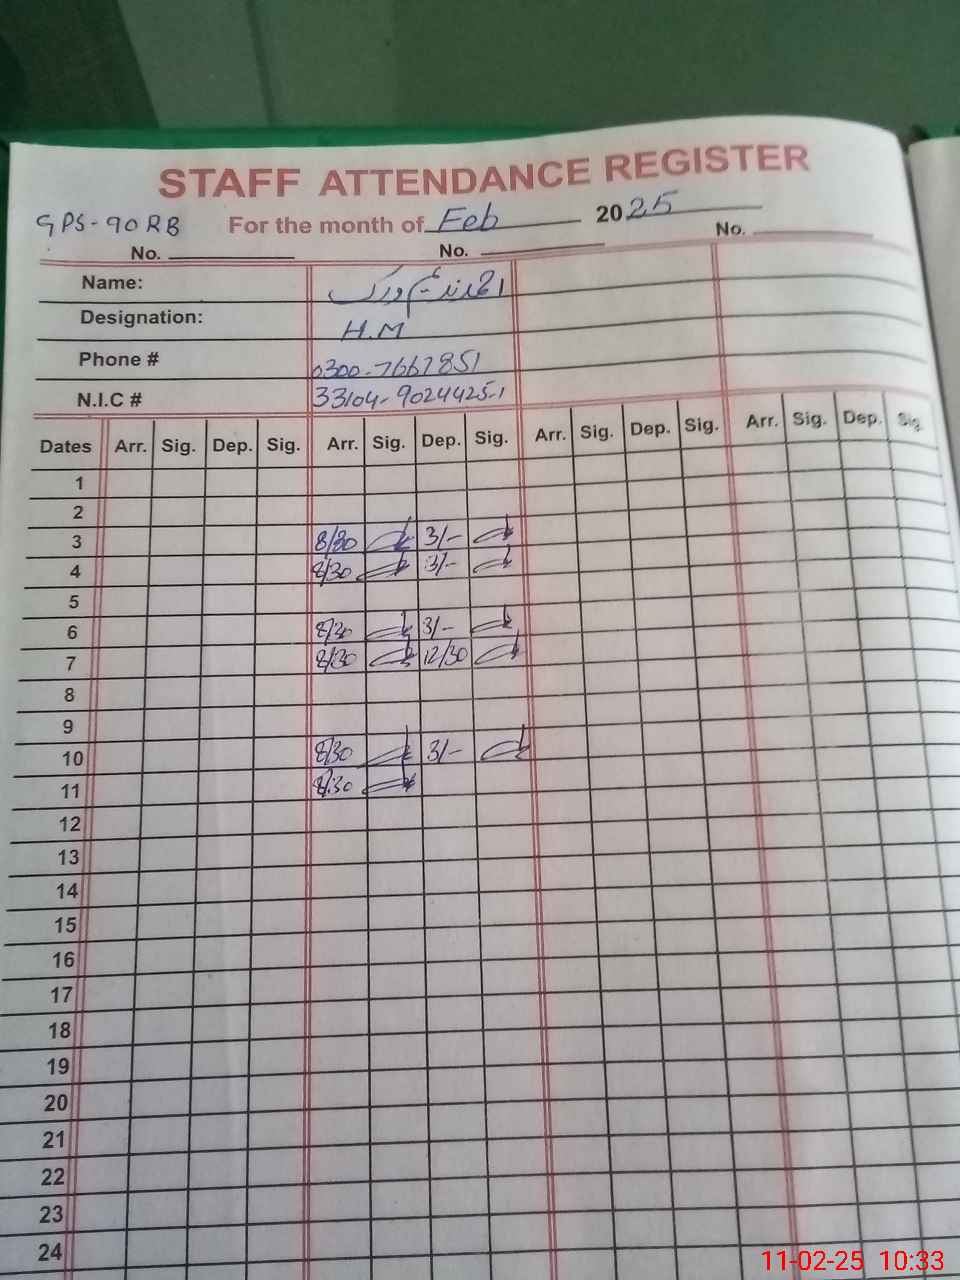 STAFF ATTENDANCE REGISTER
GPS-90 RB For the month of Feb 2025
No. No. No.
Name:
Designation: H.M
Phone # 0300-7667851
N.I.C # 33104-9024425-1
Dates Arr. Sig. Dep. Sig. Arr. Sig. Dep. Sig. Arr. Sig. Dep. Sig. Arr. Sig. Dep. Sig.
1
2
3 8/30 3/-
4 8/30 3/-
5
6 8/30 3/-
7 8/30 12/30
8
9
10 8/30 3/-
11 8/30
12
13
14
15
16
17
18
19
20
21
22
23
24
11-02-25 10:33